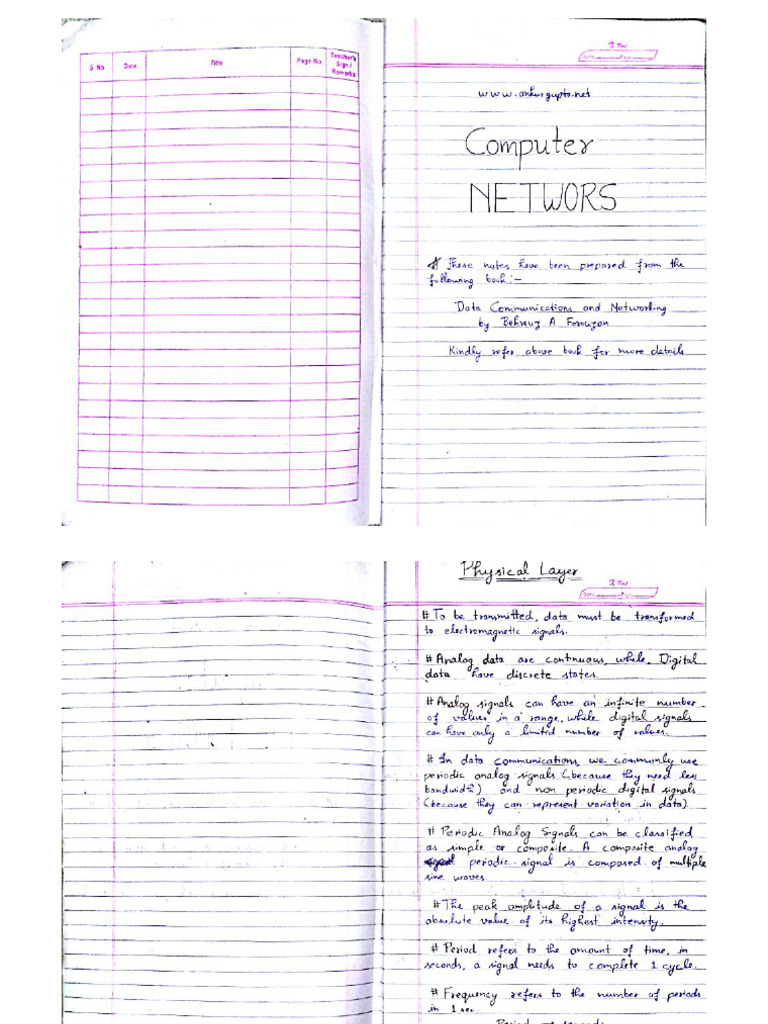 S. No.
Date
Title
Page No.
Teacher's
Sign /
Remarks
www.ankurgupta.net
Computer
NETWORS
# These notes have been prepared from the
following book:-
Data Communications and Networking
by Behrouz A Forouzan
Kindly refer above book for more details
Physical Layer
# To be transmitted, data must be transformed
to electromagnetic signals.
# Analog data are continuous, while, Digital
data have discrete states.
# Analog signals can have an infinite number
of values in a range, while digital signals
can have only a limited number of values.
# In data communications, we commonly use
periodic analog signals (because they need less
bandwidth) and non periodic digital signals
(because they can represent variation in data).
# Periodic Analog Signals can be classified
as simple or composite. A composite analog
periodic signal is composed of multiple
sine waves.
# The peak amplitude of a signal is the
absolute value of its highest intensity.
# Period refers to the amount of time, in
seconds, a signal needs to complete 1 cycle.
# Frequency refers to the number of periods
in 1 sec.